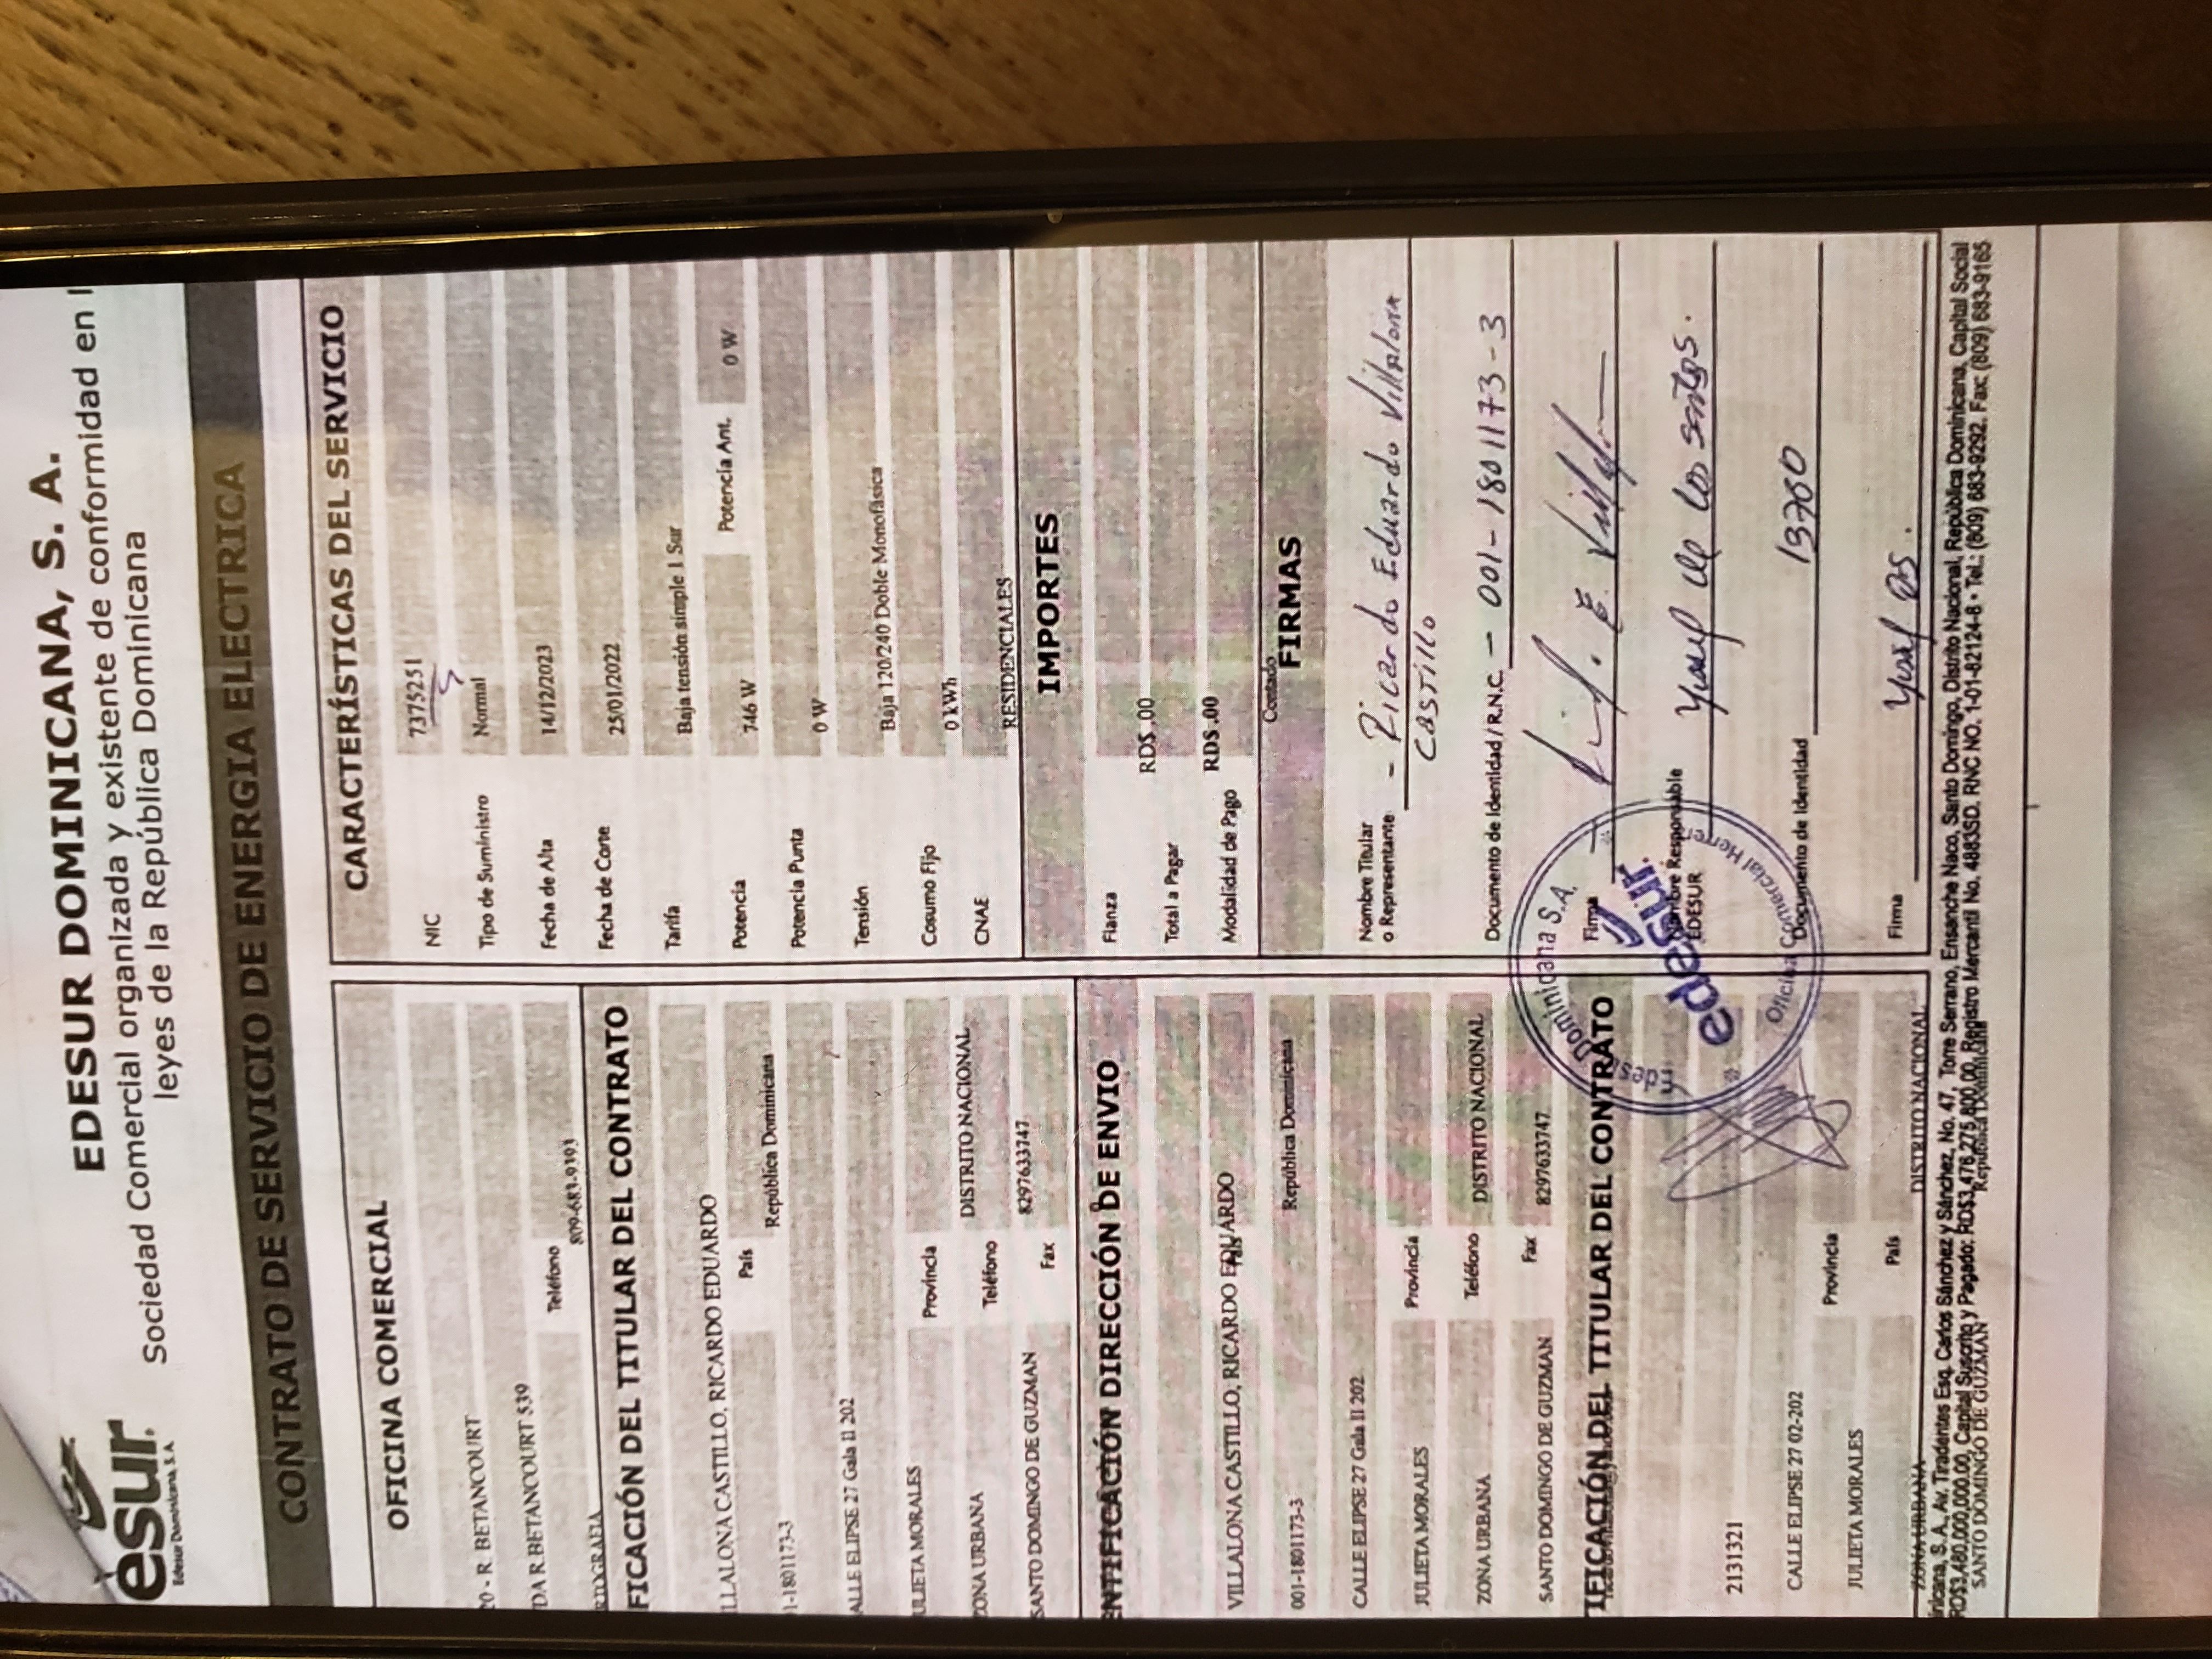 edesur.
Edesur Dominicana, S. A.
EDESUR DOMINICANA, S. A.
Sociedad Comercial organizada y existente de conformidad en l
leyes de la República Dominicana
CONTRATO DE SERVICIO DE ENERGIA ELECTRICA
OFICINA COMERCIAL
20 - R. BETANCOURT
DA R.BETANCOURT 539
Teléfono
809-683-9393
RTOGRAFIA
FICACIÓN DEL TITULAR DEL CONTRATO
ILLALONA CASTILLO, RICARDO EDUARDO
País
República Dominicana
1-1801173-3
ALLE ELIPSE 27 Gala II 202
ULIETA MORALES
Provincia
DISTRITO NACIONAL
ZONA URBANA
Teléfono
8297633747
SANTO DOMINGO DE GUZMAN
Fax
ENTIFICACIÓN DIRECCIÓN DE ENVIO
VILLALONA CASTILLO, RICARDO EDUARDO
País
001-1801173-3
República Dominicana
CALLE ELIPSE 27 Gala II 202
JULIETA MORALES
Provincia
ZONA URBANA
Teléfono
DISTRITO NACIONAL
SANTO DOMINGO DE GUZMAN
Fax
8297633747
TIFICACIÓN DEL TITULAR DEL CONTRATO
2131321
CALLE ELIPSE 27 02-202
Provincia
JULIETA MORALES
País
ZONA URBANA
DISTRITO NACIONAL
CARACTERÍSTICAS DEL SERVICIO
NIC 7375251
Tipo de Suministro Normal
Fecha de Alta 14/12/2023
Fecha de Corte 25/01/2022
Tarifa Baja tensión simple 1 Sur
Potencia 746 W Potencia Ant. 0 W
Potencia Punta 0 W
Tensión Baja 120/240 Doble Monofásica
Cosumo Fijo 0 kWh
CNAE RESIDENCIALES
IMPORTES
Fianza
RD$ .00
Total a Pagar
RD$ .00
Modalidad de Pago
Contado
FIRMAS
Nombre Titular
o Representante - Ricardo Eduardo Villalona
Castillo
Documento de Identidad / R.N.C. - 001-1801173-3
Firma
Nombre Responsable
EDESUR Yusef de los santos.
Documento de Identidad 13760
Firma Yusef DS.
Edesur Dominicana S.A.
edesur.
Oficina Comercial Herrera
inicana, S. A., Av. Tiradentes Esq. Carlos Sánchez y Sánchez, No. 47, Torre Serrano, Ensanche Naco, Santo Domingo, Distrito Nacional, República Dominicana, Capital Social
RD$3,480,000,000.00, Capital Suscrito y Pagado: RD$3,476,275,800.00, Registro Mercantil No. 4883SD. RNC NO. 1-01-82124-8 • Tel.: (809) 683-9292. Fax: (809) 683-9165
SANTO DOMINGO DE GUZMAN
República Dominicana